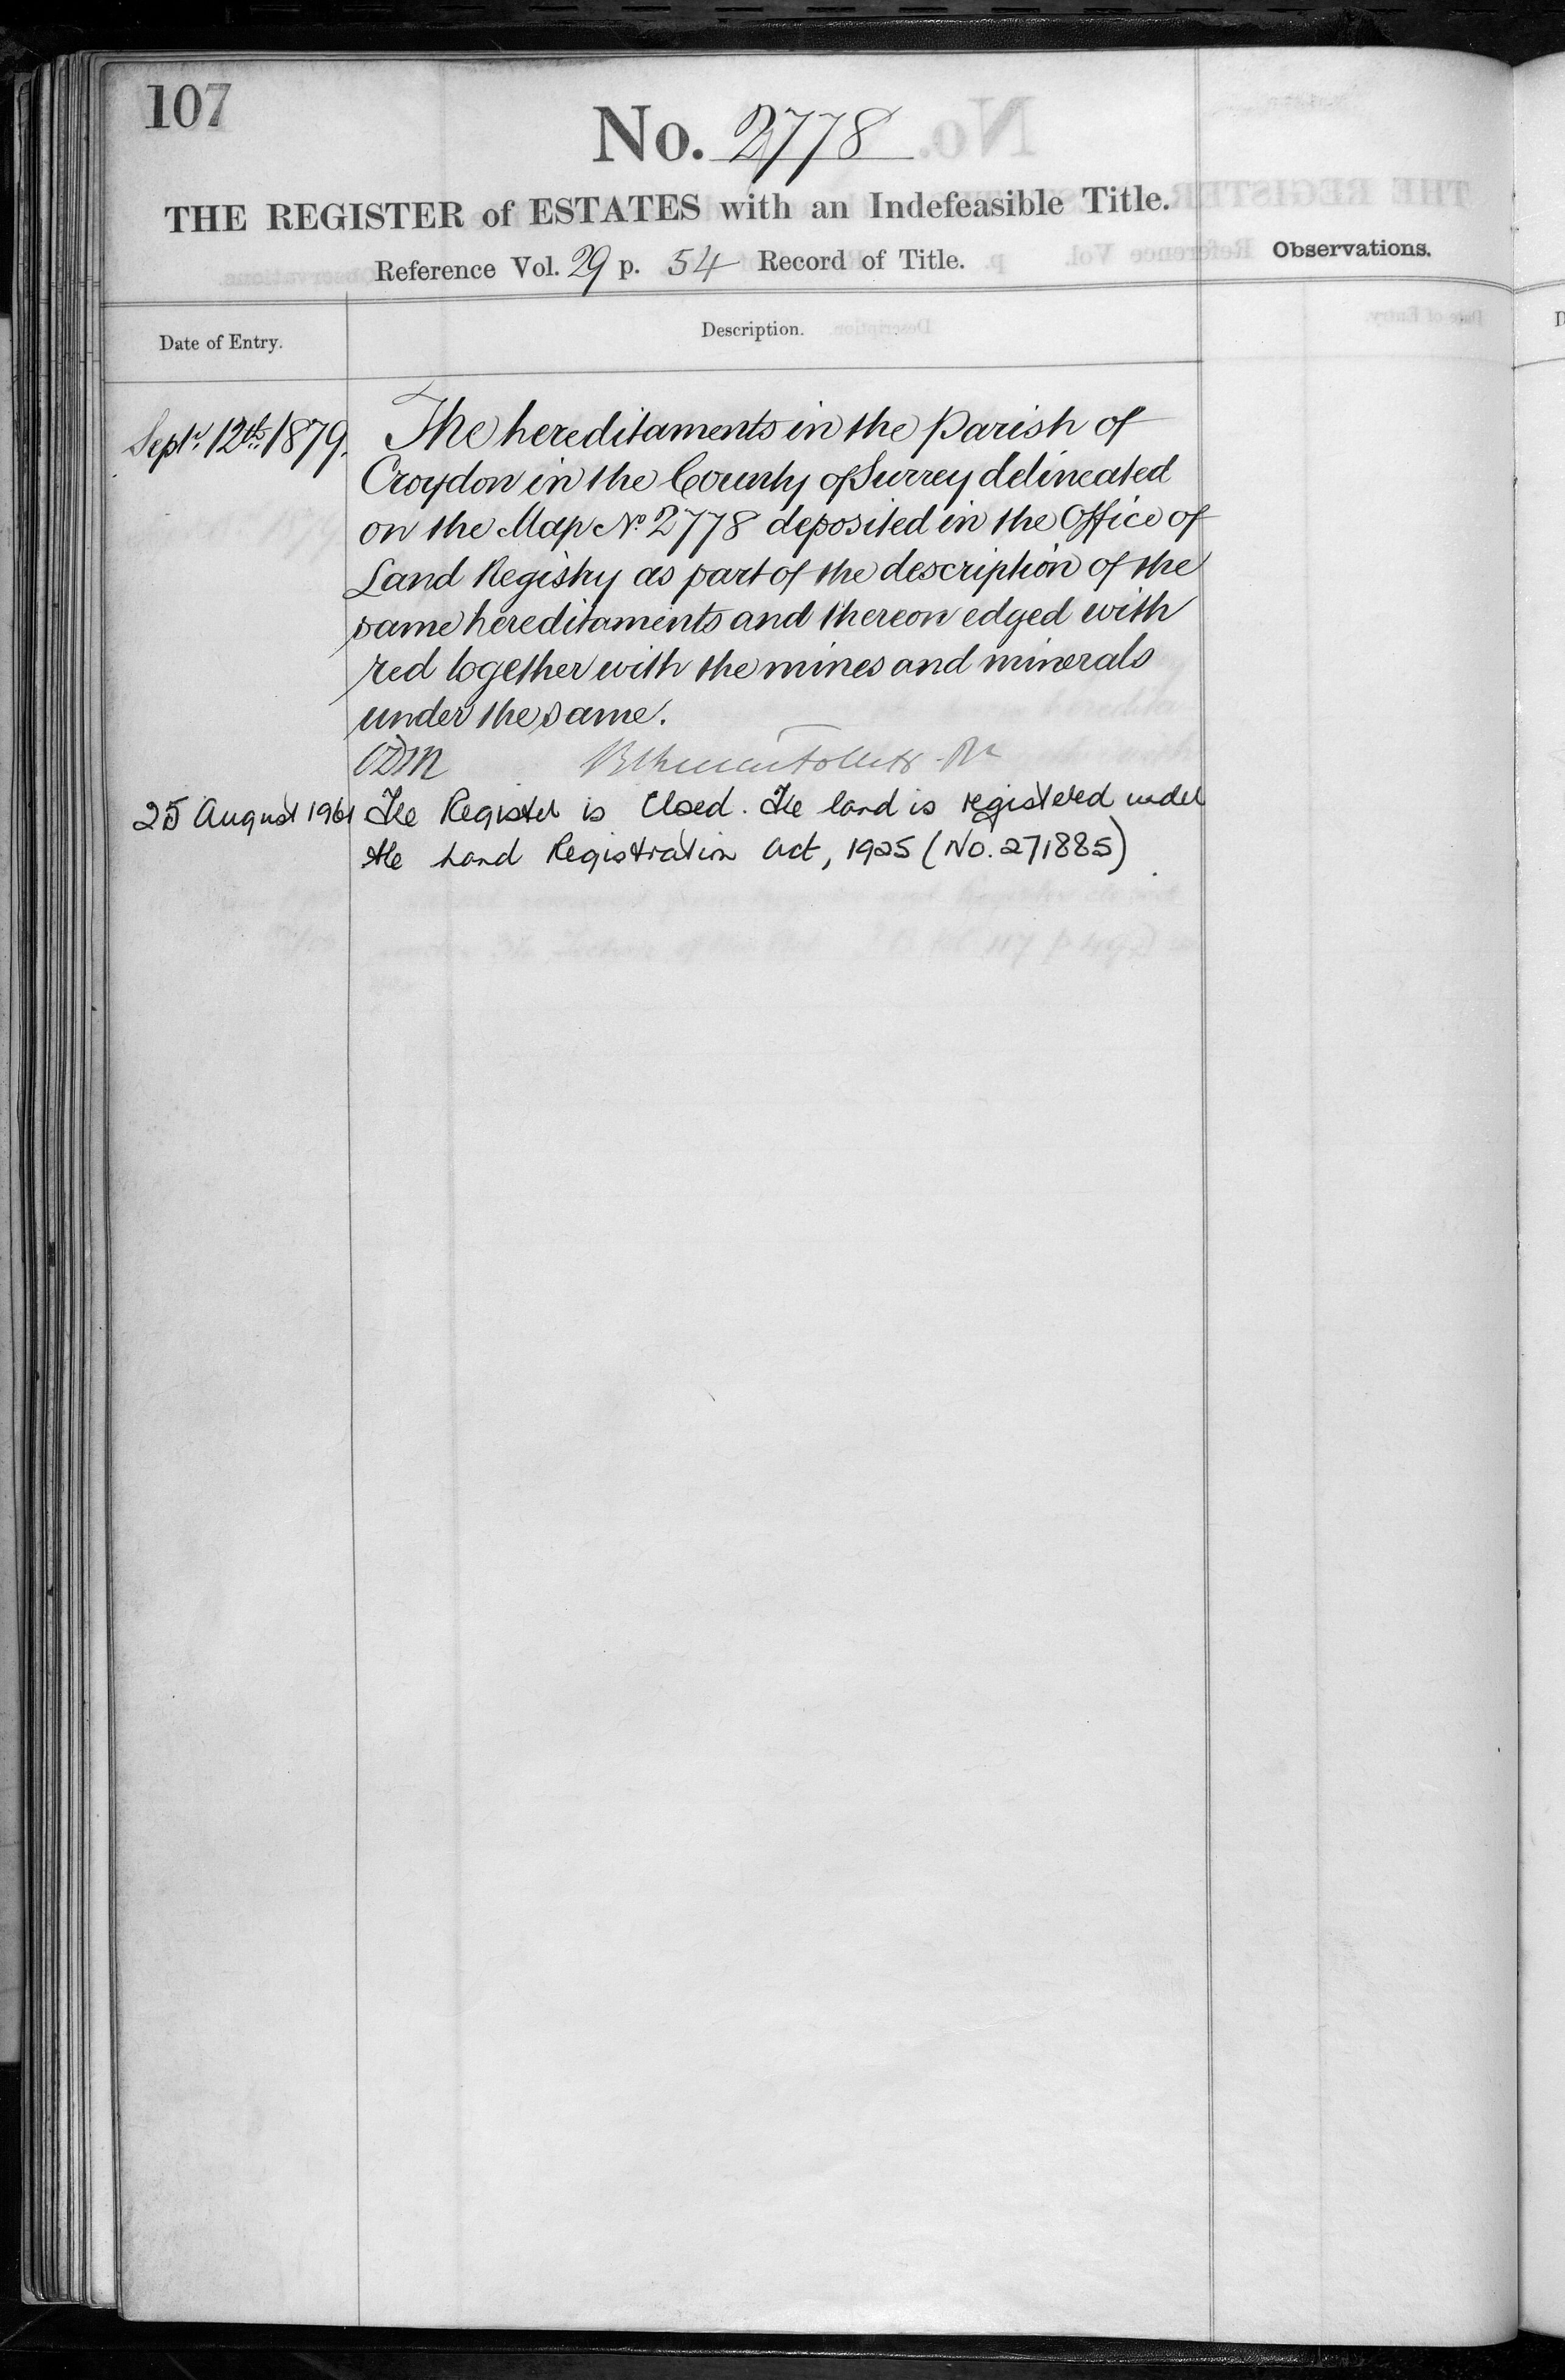 107
No. 2778
THE REGISTER of ESTATES with an Indefeasible Title.
Reference Vol. 29 p. 54 Record of Title.
Observations.
Date of Entry.
Description.
Septr. 12th. 1879. The hereditaments in the Parish of
Croydon in the County of Surrey delineated
on the Map No. 2778 deposited in the Office of
Land Registry as part of the description of the
same hereditaments and thereon edged with
red together with the mines and minerals
under the same.
25 August 1961 The Register is Closed. The land is registered under
the Land Registration Act, 1925 (No. 271885).